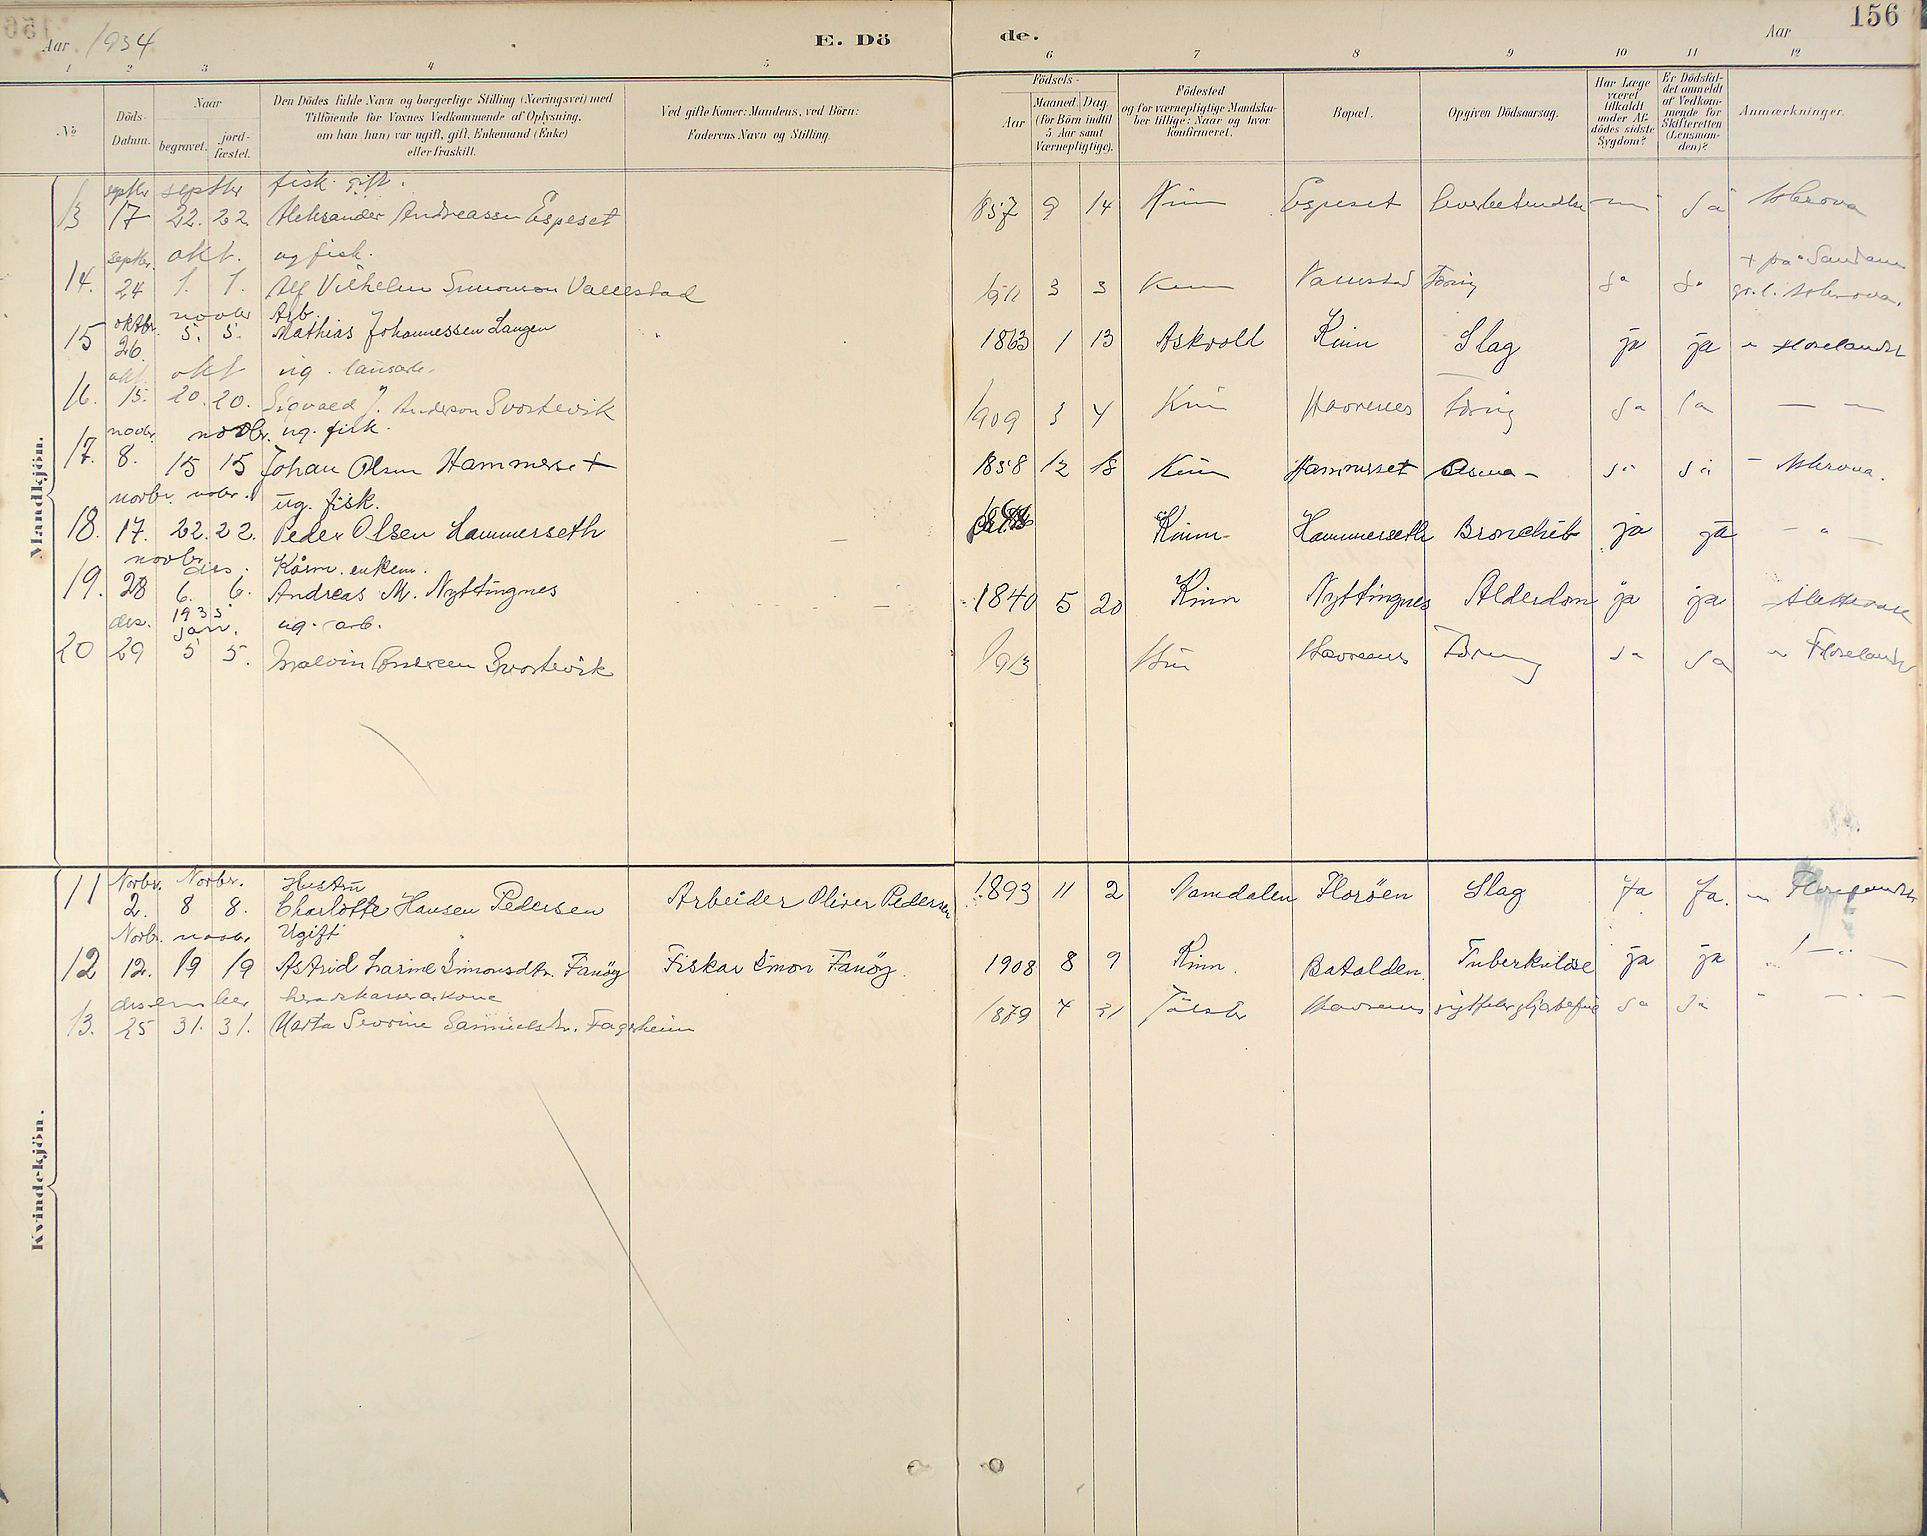 Aar 1934
E. Dö
de.
Aar
156
1 2 3 4 5 6 7 8 9 10 11 12
No
Döds-Datum.
Naar
begravet.
jord-fæstet.
Den Dödes fulde Navn og borgerlige Stilling (Næringsvei) med
Tilföiende for Voxnes Vedkommende af Oplysning,
om han (hun) var ugift, gift, Enkemand (Enke)
eller fraskilt.
Ved gifte Koner: Mandens, ved Börn:
Faderens Navn og Stilling.
Födsels-
Aar
Maaned. Dag.
(for Börn indtil
5 Aar samt
Værnepligtige).
Födested
og for værnepligtige Mandska-
ber tillige: Naar og hvor
konfirmeret.
Bopæl.
Opgiven Dödsaarsag.
Har Læge
været
tilkaldt
under Af-
dödes sidste
Sygdom?
Er Dödsfal-
det anmeldt
af Vedkom-
mende for
Skifteretten
(Lensman-
den)?
Anmærkninger.
Mandkjön.
septbr septbr fisk. gift.
13 17 22. 22 Aleksander Andreassen Espeset 1857 9 14 Kinn Espeset Ja
septbr. okt. ug fisk.
14. 24 1. 1. Alf Vilhelm Simonson Vallestad 1911 3 3 Kinn Ja Ja
oktbr novbr Arb.
15 26. 5. 5. Mathias Johannessen Langen 1863 1 13 Askvoll Kinn Slag ja ja
okt. okt ug.
16. 15. 20. 20. Sigvald J. Anderson Svortevik 1909 3 4 Kinn Havrenes Ja Ja — —
novbr. novbr. ug. fisk.
17. 8. 15 15 Johan Olsen Hammerset 1858 12 18 Kinn Hammerset Ja Ja
novbr. nvbr. ug. fisk.
18. 17. 22. 22. Peder Olsen Hammerseth Kinn Hammerseth Bronchit ja ja — " —
novbr. des. Kårm. enkem.
19. 28 6. 6. Andreas M. Nyttingnes 1840 5 20 Kinn Nyttingnes Alderdom ja ja
des. 1935 jan. ug. arb.
20 29 5 5. Svortevik 1913 Kinn Havrenes Ja Ja
Kvindekjön.
Novbr. Novbr. Hustru
11 2. 8 8. Charlotte Hansen Pedersen Arbeider Oliver Pedersen 1893 11 2 Namdalen Florøen Slag Ja Ja.
Novbr. novbr Ugift
12 12. 19 19 Astrid Larine Simonsdtr. Fanöy Fiskar Simon Fanöy. 1908 8 9 Kinn. Batalden. Tuberkulose ja ja
desember
13. 25 31. 31. Marta Severine Samuelsdtr. Fagerheim 1879 7 31 Jölster Havrenes Ja Ja